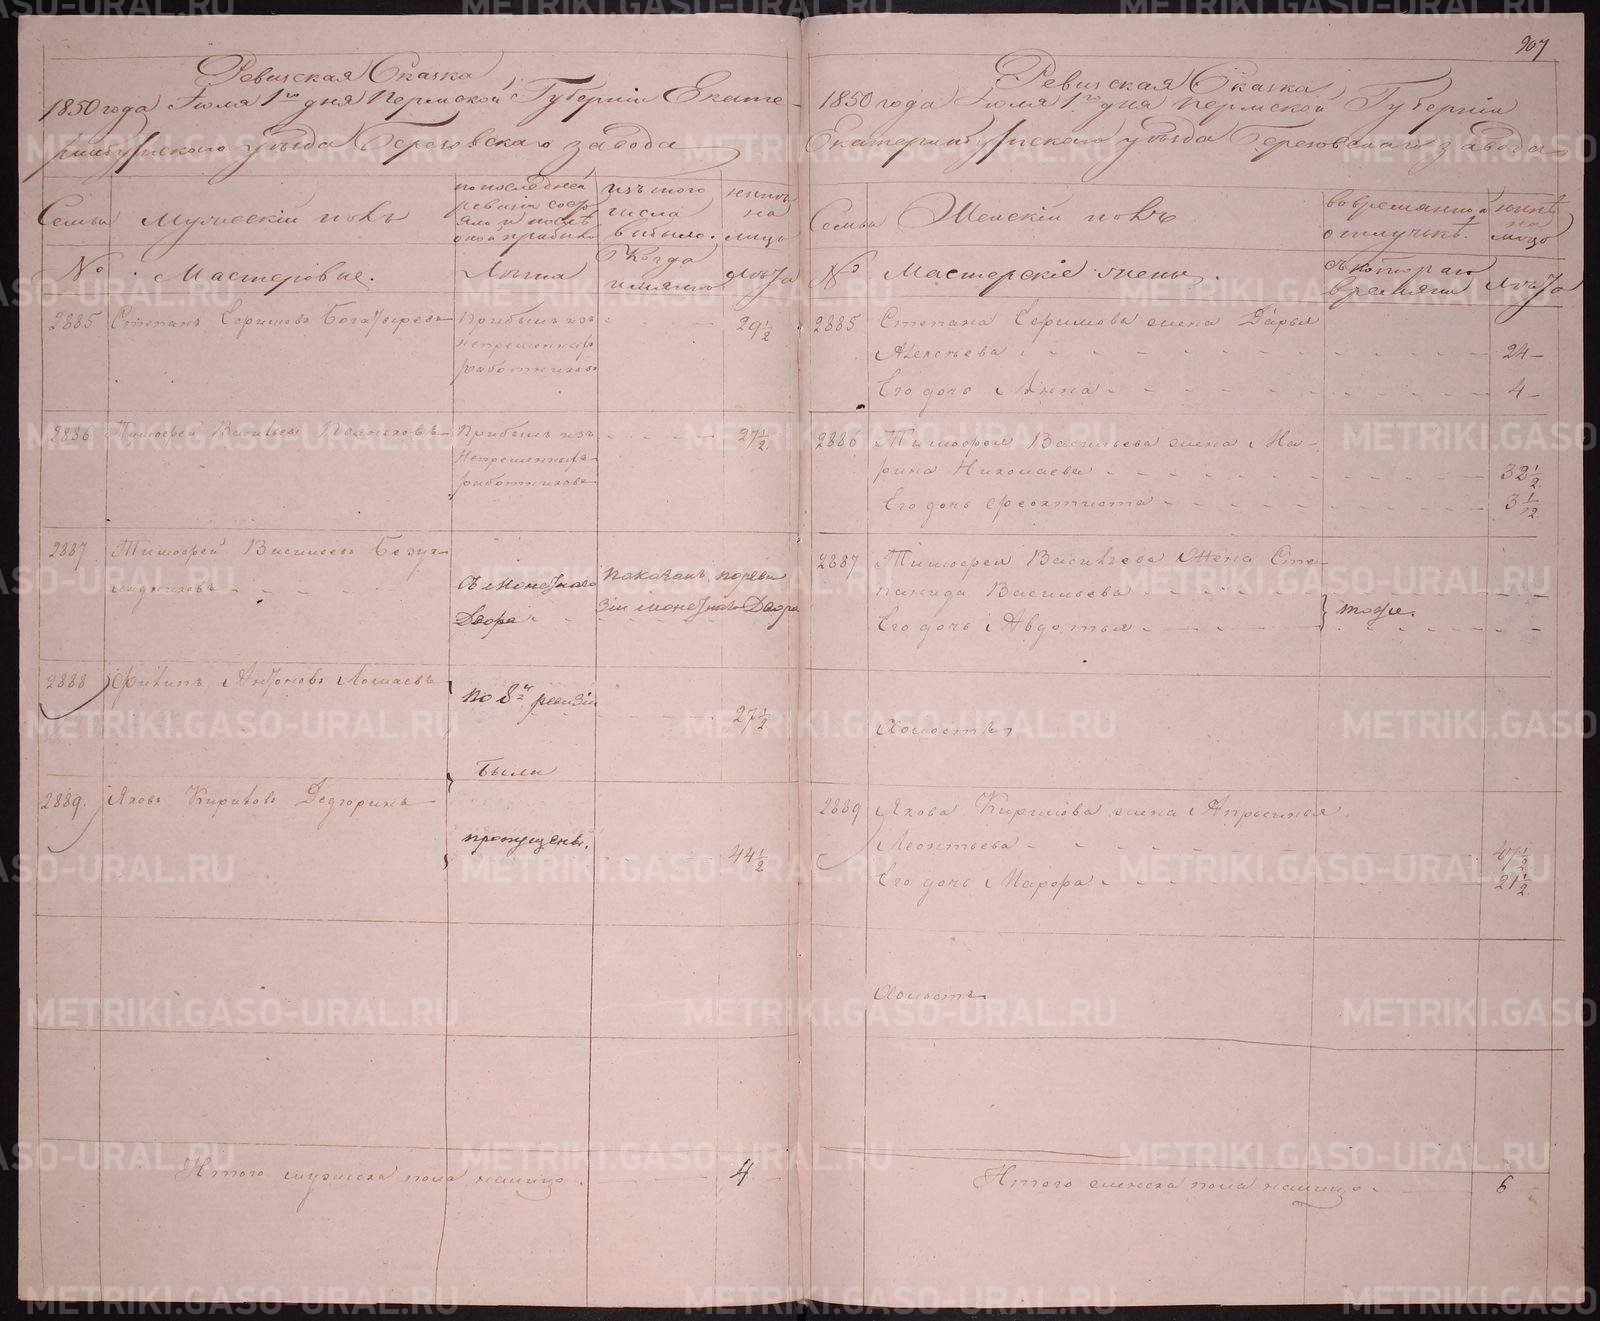 Ревизская Сказка
1850 года Июля 1го дня Пермской Губерніи Екате-
ринбургскаго уѣзда Березовскаго завода
Семьи
Мужескій полъ
по последней
ревизіи состо
яло и послѣ
оной прибыло
изъ того
числа
выбыло.
нынѣ
на
лицо
№
Мастеровые.
Лѣта
Когда
именно
Лѣта
2885
Степанъ Ефимовъ Богатыревъ
Прибылъ изъ
непременныхъ
работниковъ
29 1/2
2886
Тимофей Васильевъ
Прибылъ изъ
Непременныхъ
работниковъ
27 1/2
2887
Тимофей Васильевъ
съ Монетнаго
Двора
показанъ по реви
зіи монетнаго Двора
2888
Филипъ Антоновъ
по 8й ревизіи
27 1/2
были
2889.
Яковъ Кириловъ Дедюринъ
пропущены.
44 1/2
Итого мужеска пола налицо
4
907
Ревизская Сказка
1850 года Іюля 1го дня Пермской Губерніи
Екатеринбургскаго уѣзда Березовскаго завода
Семьи
Женскій полъ
во временной
отлучкѣ.
нынѣ
на
лицо
№
Мастерскіе жены.
съ котораго
времяни
Лѣта
2885
Степана Ефимова жена Дарья
24
Его дочь Анна
4
2886
Тимофея Васильева жена Ма-
рина Николаева
32 1/2
Его дочь Феоктиста
3 1/12
2887
Тимофея Васильева Жена Сте-
панида Васильева
тоже.
Его дочь Авдотья
Холостъ
2889
Якова Кирилова жена Апросинья
Леонтьева
47 1/2
Его дочь Марфа
21 1/2
Холостъ
Итого женска пола налицо
6
METRIKI.GASO-URAL.RU